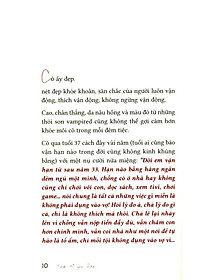 Cô ấy đẹp.
nét đẹp khỏe khoắn, săn chắc của người luôn vận
động, thích vận động, không ngừng vận động.
Cao, chân thẳng, da nâu hồng và màu đỏ từ những
thỏi son vampired cũng không thể gợi cảm hơn
khóe môi cô trong mỗi đêm tiệc.
Cô qua tuổi 37 cách đây vài năm (tuổi ai cũng bảo
vận hạn nào trong đời cũng không kinh khủng
bằng) với một nụ cười nửa miệng: "Đời em vận
hạn từ sau năm 33. Hạn nào bằng hàng ngàn
đêm ngủ một mình, chồng có ở nhà hay không
cũng chỉ chơi với con, đọc sách, xem tivi, chơi
game.. nói chung là tất cả những việc gì miễn là
không phải đụng vào vợ! Hỏi lý do à, chả lý do gì
cả, chỉ là không thích mà thôi. Chả lẽ lại nhảy
lên vì chồng vẫn nộp tiền đầy đủ, vẫn chăm con
hơn chính mình, vẫn coi nhà như một nơi để tự
hào là tổ ấm, chỉ mỗi tội không đụng vào vợ vì..
10